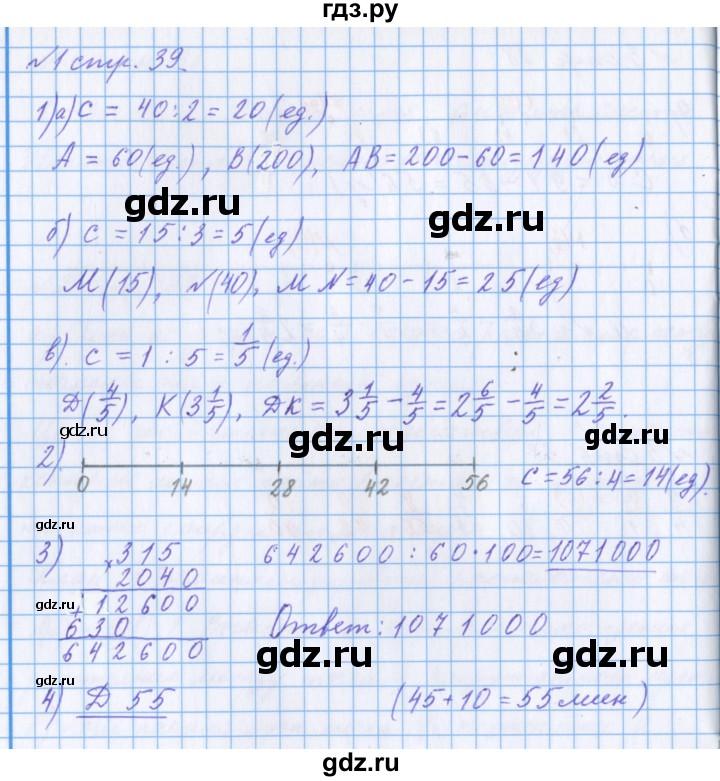 гдз.ру
№1 стр. 39
1) а) С = 40 : 2 = 20 (ед.)
А = 60 (ед.), В(200), АВ = 200 - 60 = 140 (ед)
gdz.ru gdz.ru
б) с = 15 : 3 = 5 (ед)
М(15), N(40), MN = 40 - 15 = 25 (ед)
в). с = 1 : 5 = 1/5 (ед.)
Д(4/5), К(3 1/5), ДК = 3 1/5 - 4/5 = 2 6/5 - 4/5 = 2 2/5.
gdz.ru gdz.ru gdz.ru
2). 0 14 28 42 56 С = 56 : 4 = 14 (ед).
gdz.ru
3) × 315 642600 : 60 · 100 = 1071000
2040
gdz.ru
+ 12600
630 Ответ: 1071000
642600
gdz.ru gdz.ru
gdz.ru
4) Д 55 (45 + 10 = 55 мин)
gdz.ru gdz.ru